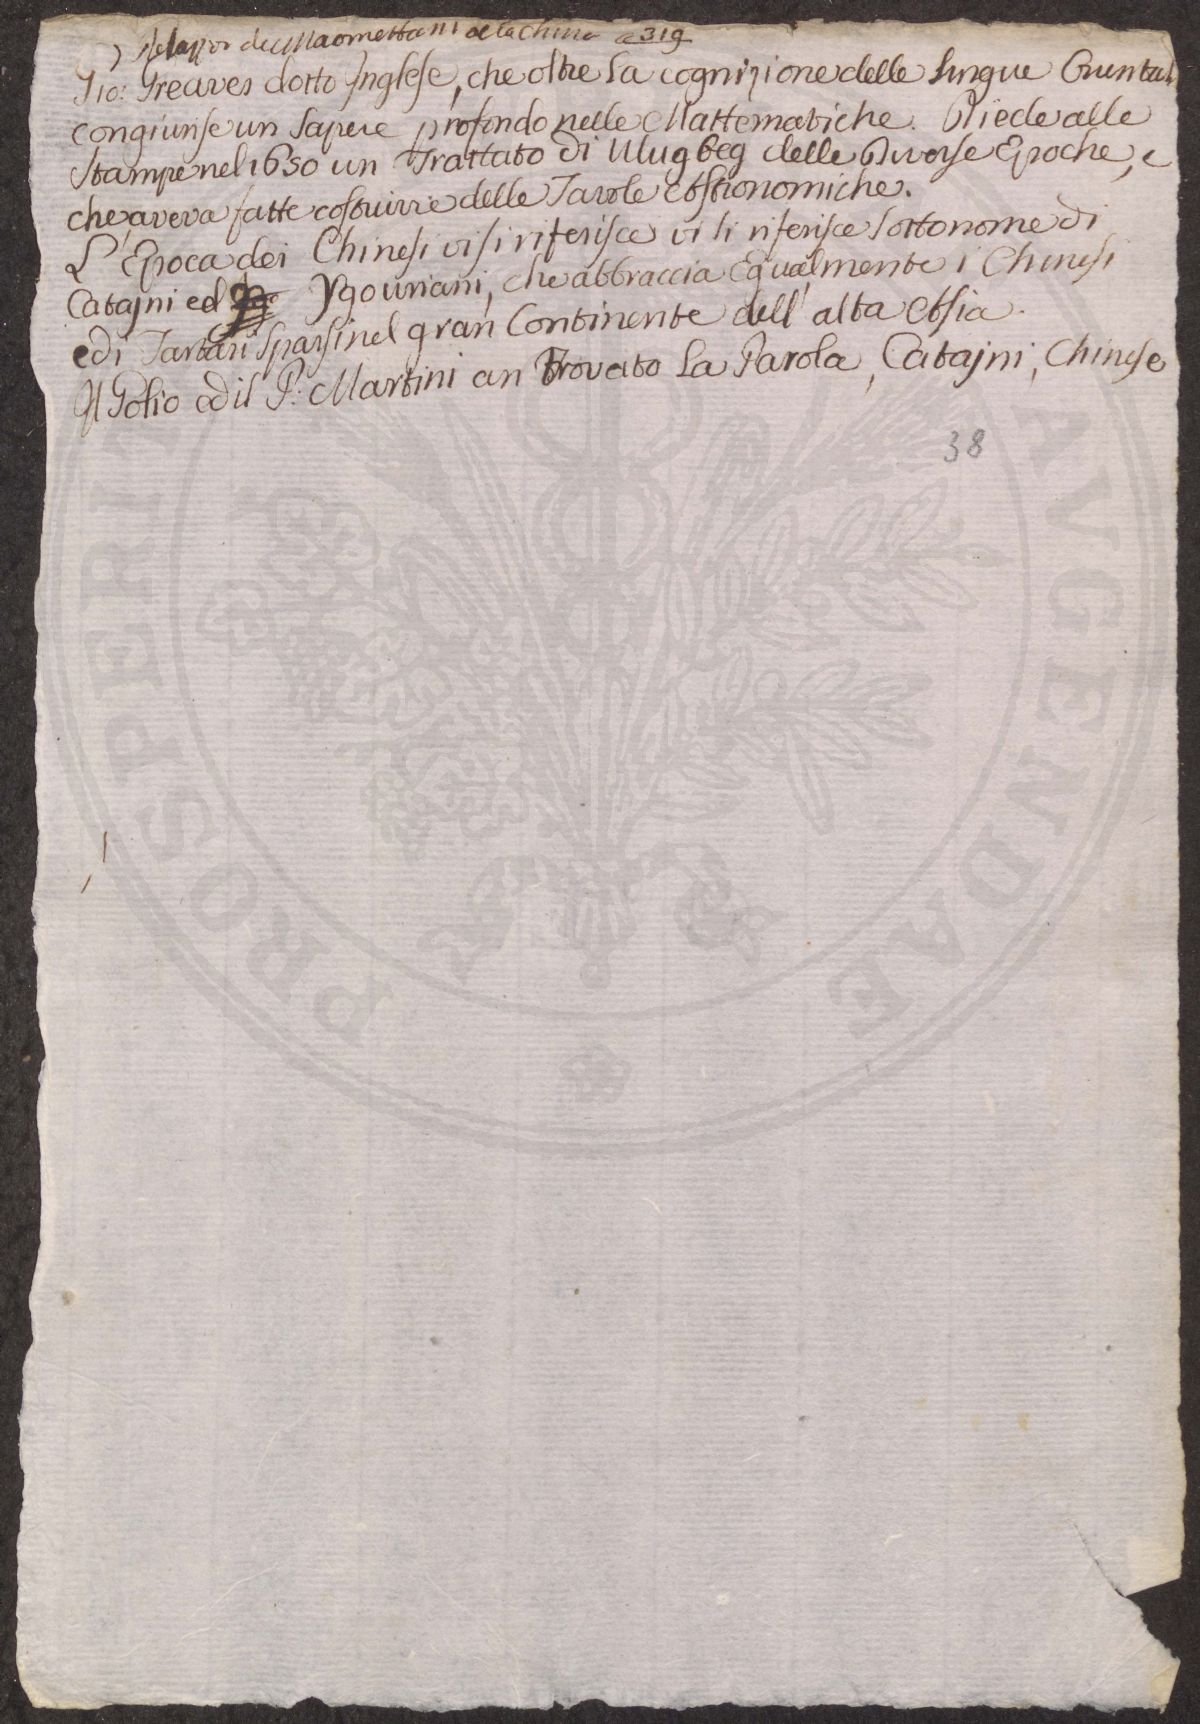 de Maomettani della China a 319
Gio: Greaves dotto Inglese, che oltre la cognizione delle lingue Orientali
congiunse un sapere profondo nelle Mattematiche. Diede alle
Stampe nel 1650 un Trattato di Ulugbeg delle diverse Epoche, e
che aveva fatte costruirre delle Tavole Astronomiche.
L'Epoca dei Chinesi vi si riferisce vi si riferisce sotto nome di
Catajni ed Ygouriani, che abbraccia egualmente i Chinesi
e di Tartari sparsi nel gran Continente dell' alta Asia.
Il Golio ed il P: Martini an trovato la Parola, Catajni, Chinese
38
PROSPERITATI AVGENDAE